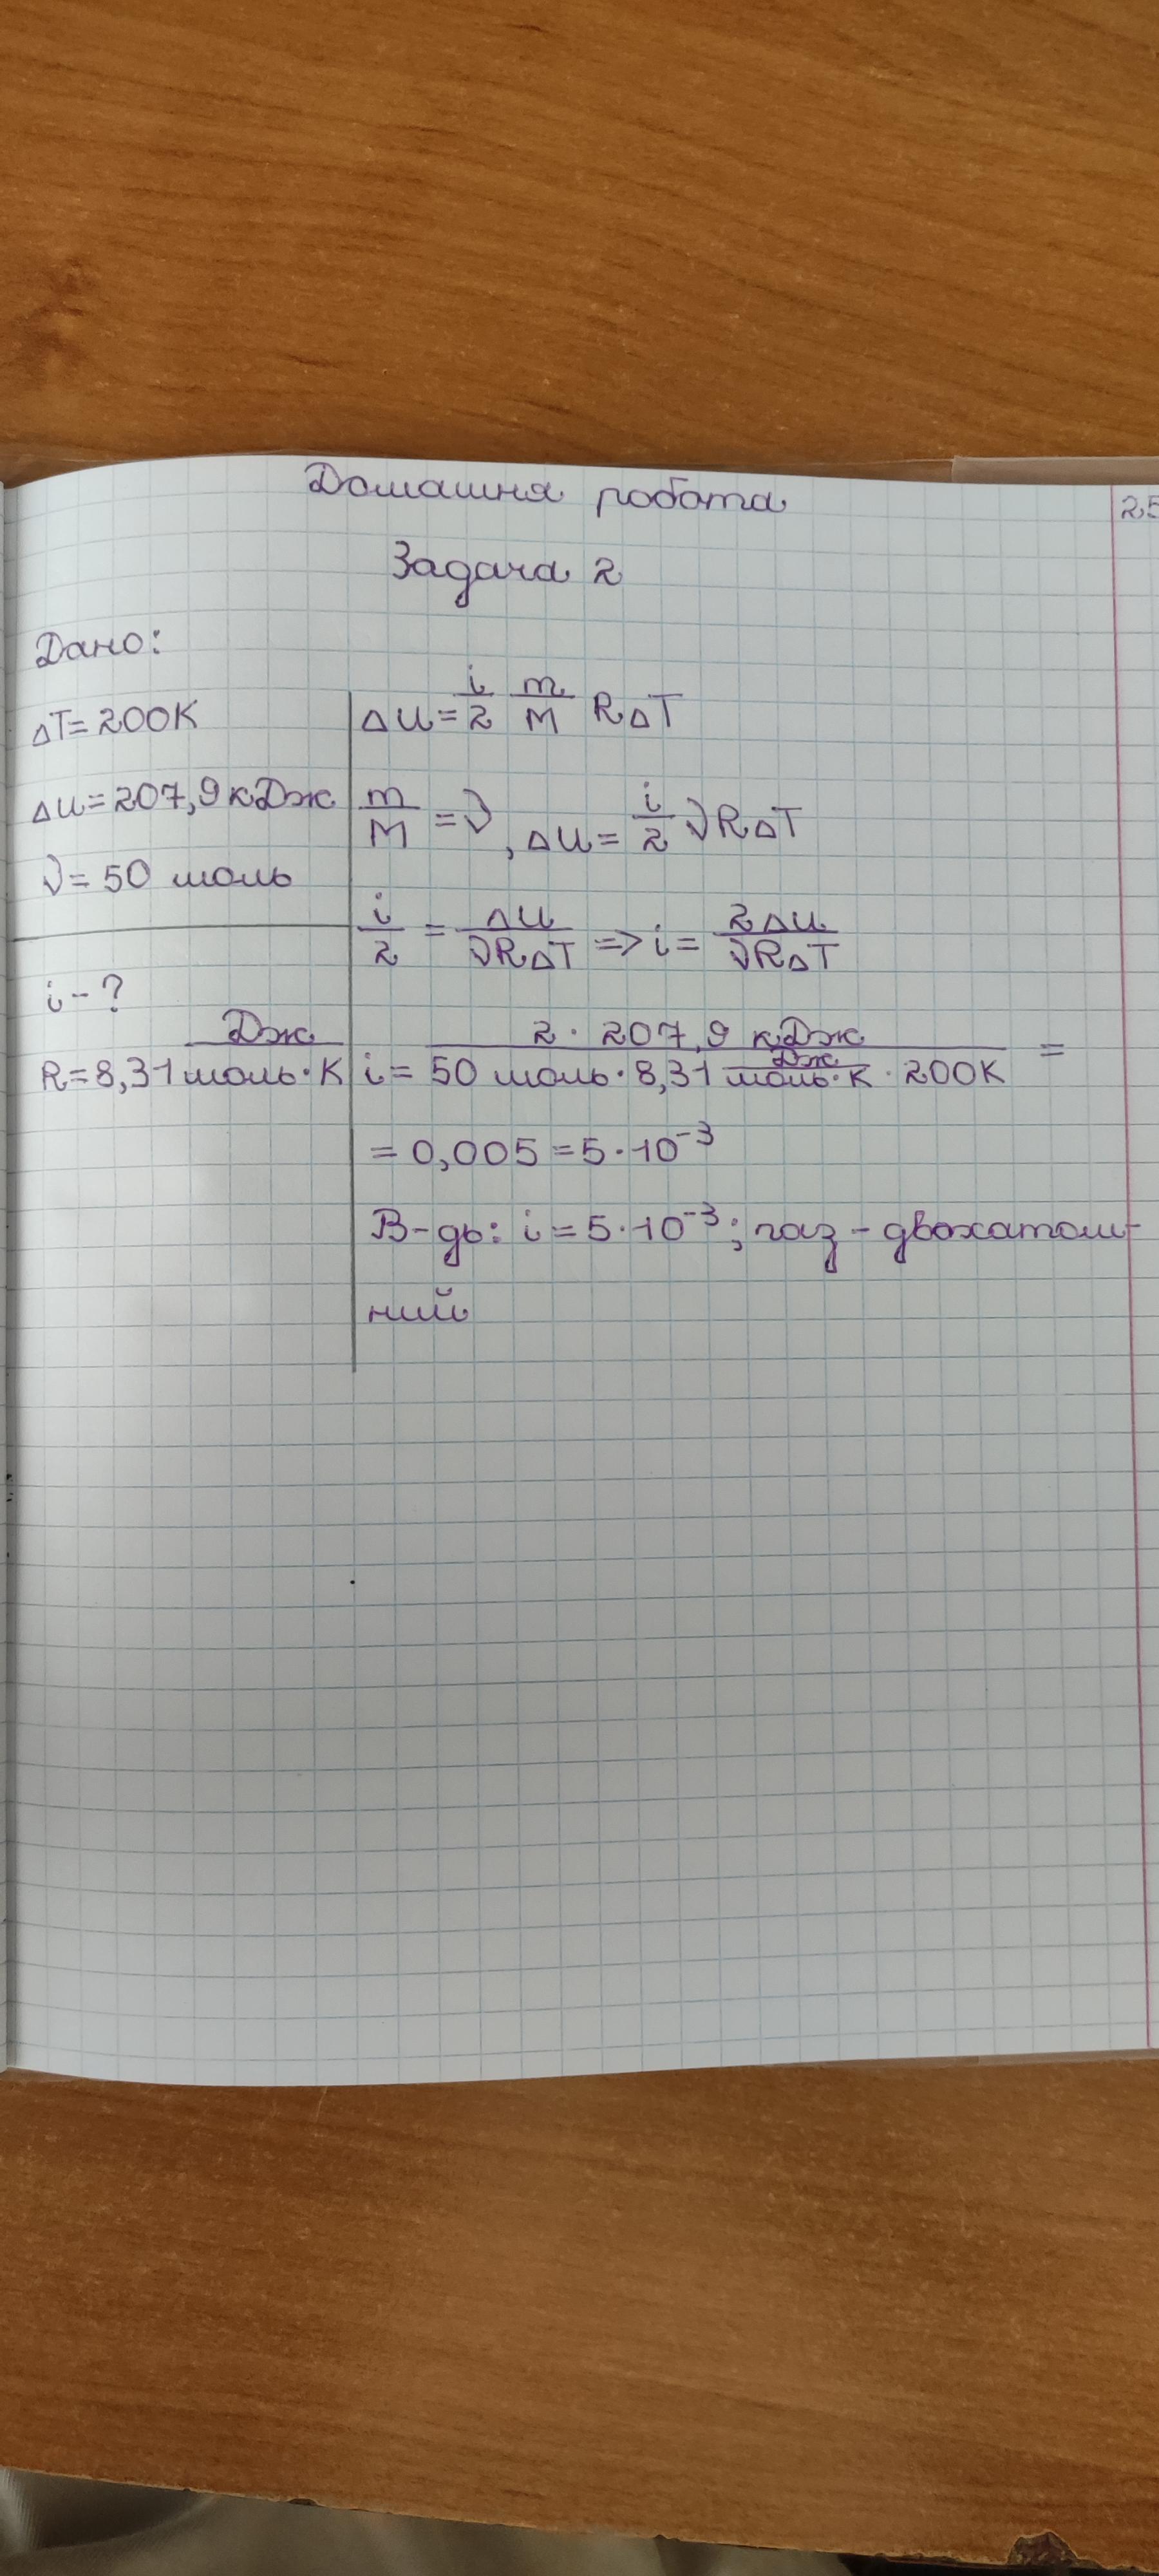 Домашня робота
25
Задача 2
Дано:
ΔT=200K
ΔU=207,9 кДж
ν=50 моль
i-?
R=8,31 Дж/моль·К
ΔU= i/2 m/M RΔT
m/M =ν, ΔU= i/2 νRΔT
i/2 = ΔU/νRΔT => i= 2ΔU/νRΔT
i= 2·207,9 кДж/50 моль·8,31 Дж/моль·К·200К =
= 0,005=5·10⁻³
В-дь: i=5·10⁻³; газ-двохатом-
ний